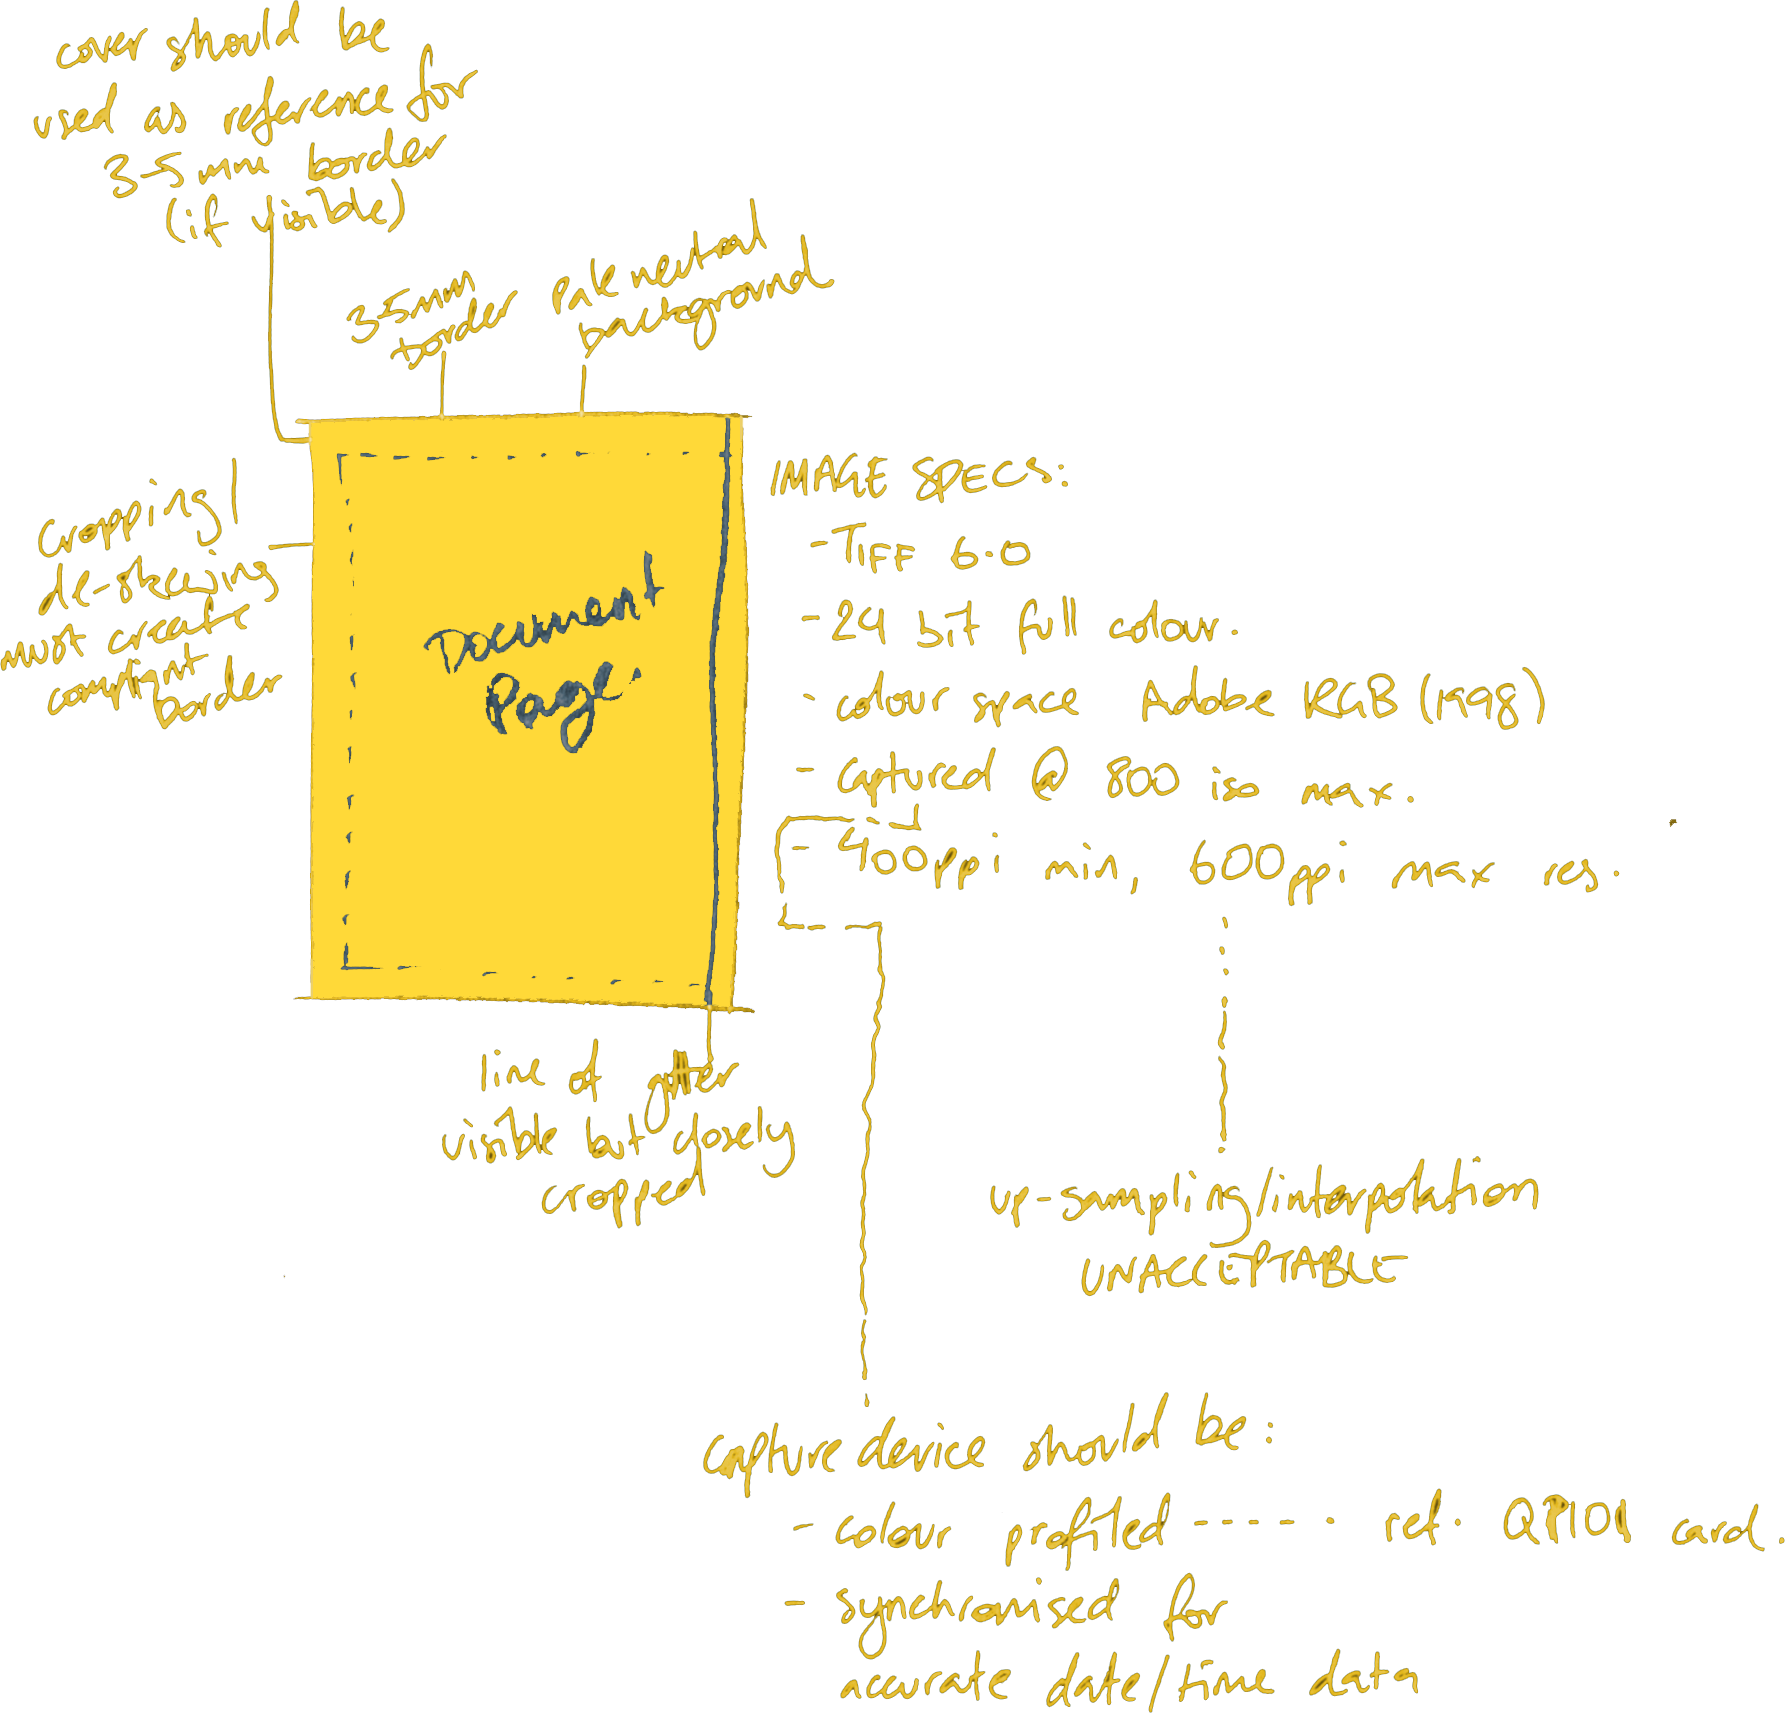 cover should be
used as reference for
3-5mm border
(if visible)
3-5mm
border
Pale neutral
background
Cropping/
de-skewing
must create
compliant
border
Document
Page.
IMAGE SPECS:
- TIFF 6.0
- 24 bit full colour.
- colour space Adobe RGB (1998)
- captured @ 800 iso max.
- 400ppi min, 600ppi max res.
line of gutter
visible but closely
cropped
up-sampling/interpolation
UNACCEPTABLE
capture device should be:
- colour profiled ----- ref. QP101 card.
- synchronised for
accurate date/time data